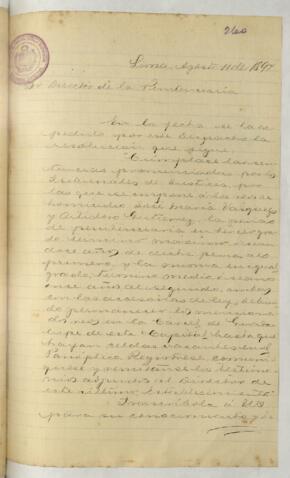 260
Lima, Agosto 11 de 1897
Sor Director de la Penitenciaria
En la fecha se ha ex-
pedido por este Despacho la
resolucion que sigue:
Cumplase las sen-
tencias pronunciadas por los
Tribunales de Justicia, por
las que se impone á los reos de
homicidio José Maria Vasquez
y Gutierrez, la pena
de penitenciaria en tercer gra-
do termino maximo, ó sean
doce años de dicha pena al
primero, y la misma en igual
grado, termino medio, ó sean
once años al segundo, ambos
con las accesorias de ley, debien-
do permanecer los menciona-
dos reos en la Carcel de Guada-
lupe de esta Capital, hasta que
hayan celdas vacantes en el
Panóptico. Registrese, comuni-
quese y remitanse los testimo-
nios adjuntos al Director de
este ultimo Establecimiento.
Trascribola á US.
para su conocimiento y de